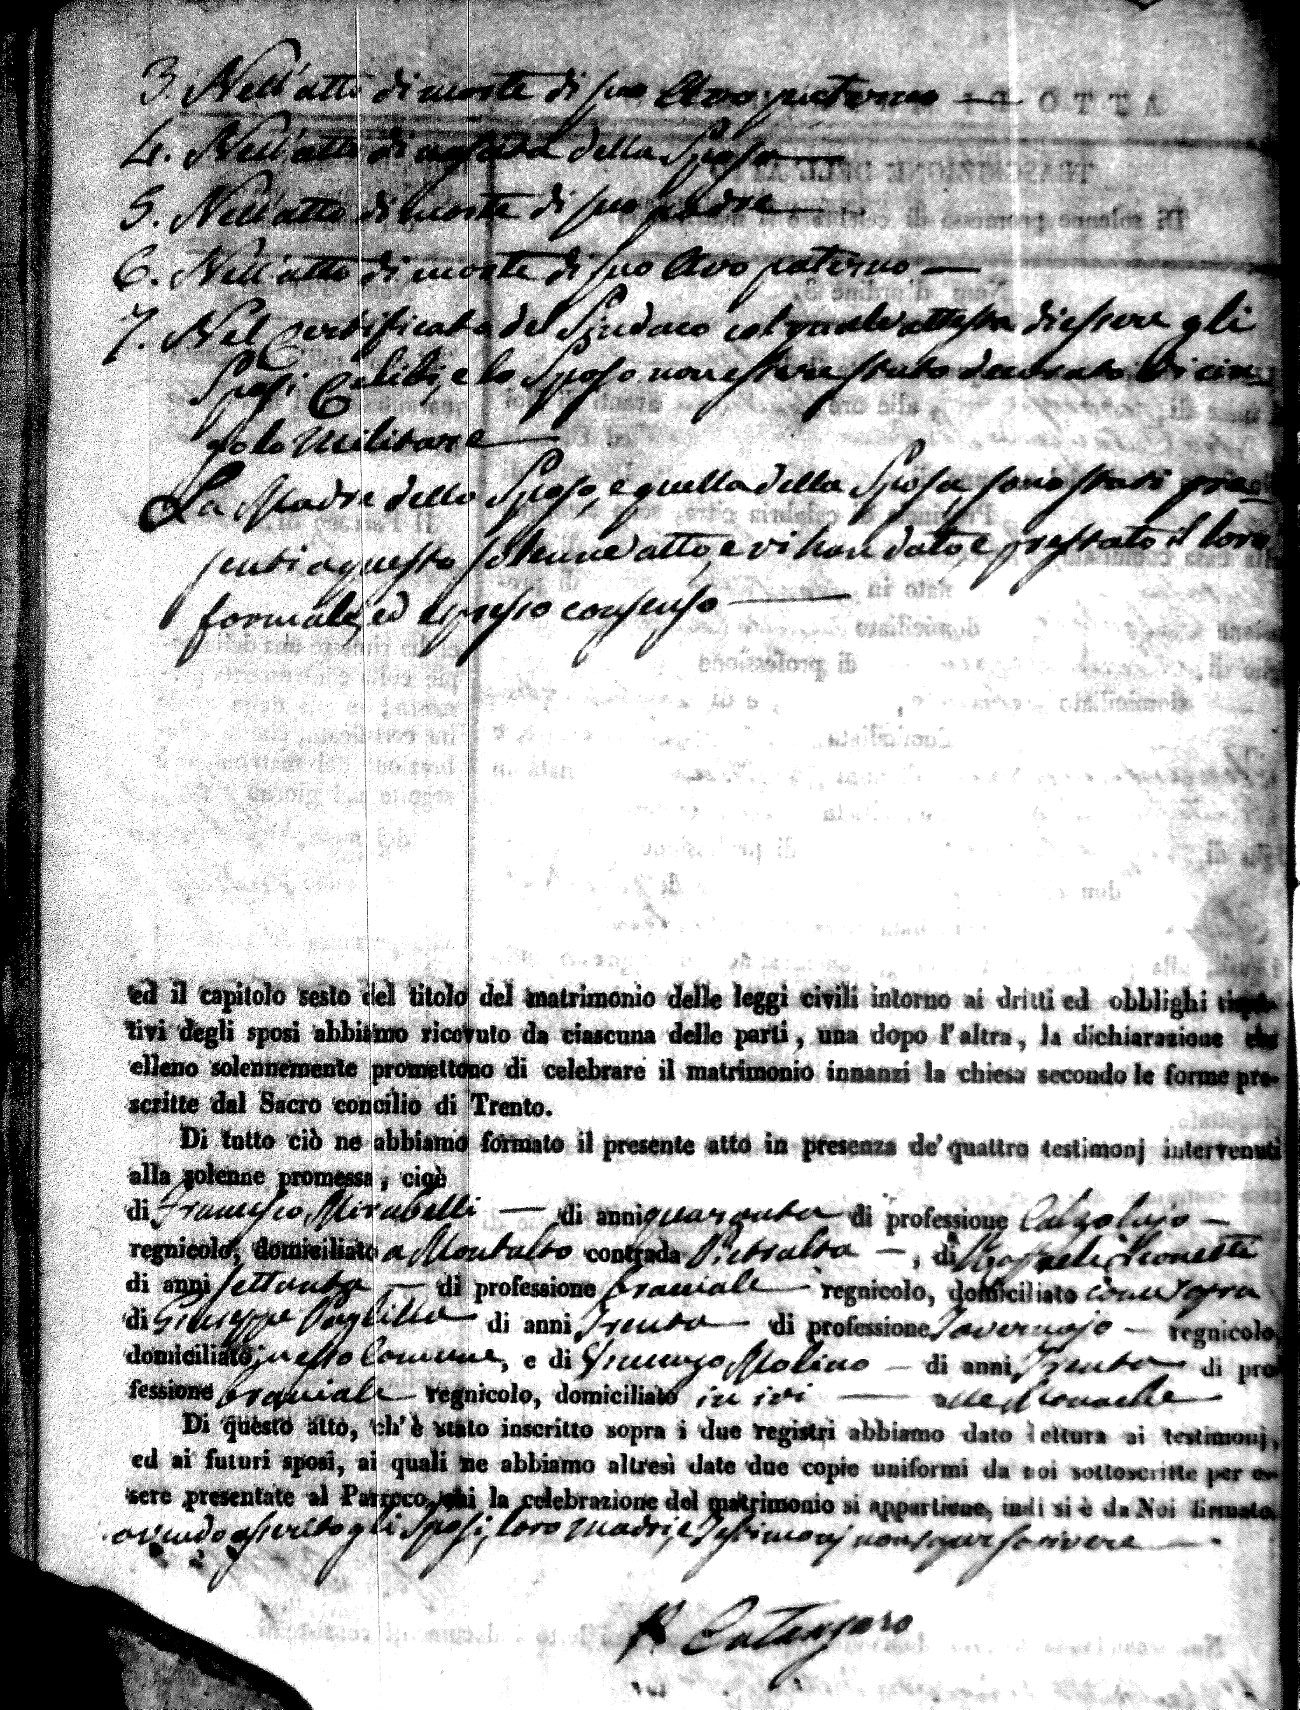 3. Nell'atto di morte di suo Avo paterno —
4. Nell'atto di nascita della Sposa —
5. Nell'atto di morte di suo padre —
6. Nell'atto di morte di suo Avo paterno —
7. Nel Certificato del Sindaco col quale attesta di essere gli
Sposi Celibi, e lo Sposo non essere stato decorato di cin-
golo militare —
La Madre dello Sposo, e quella della Sposa sono stati pre-
senti a questo solenne atto, e vi han dato, e prestato il loro
formale, ed espresso consenso —
ed il capitolo sesto del titolo del matrimonio delle leggi civili intorno ai dritti ed obblighi rispet-
tivi degli sposi abbiamo ricevuto da ciascuna delle parti, una dopo l'altra, la dichiarazione che
elleno solennemente promettono di celebrare il matrimonio innanzi la chiesa secondo le forme pre-
scritte dal Sacro concilio di Trento.
Di tutto ciò ne abbiamo formato il presente atto in presenza de' quattro testimonj intervenuti
alla solenne promessa, cioè
di Francesco Mirabelli — di anni quaranta di professione Calzolajo —
regnicolo, domiciliato a Montalto contrada Pietralta —, di
di anni settanta — di professione braciale — regnicolo, domiciliato come sopra
di Giuseppe di anni Trenta — di professione Tavernajo — regnicolo,
domiciliato in esso Comune, e di Vincenzo Molino — di anni Trenta di pro-
fessione braciale regnicolo, domiciliato in ivi —
Di questo atto, ch'è stato inscritto sopra i due registri abbiamo dato lettura ai testimonj,
ed ai futuri sposi, ai quali ne abbiamo altresì date due copie uniformi da noi sottoscritte per es-
sere presentate al Parroco, cui la celebrazione del matrimonio si appartiene, indi si è da Noi firmato.
avendo asserito gli Sposi, loro madri, e Testimonj non saper scrivere —
Catanzaro